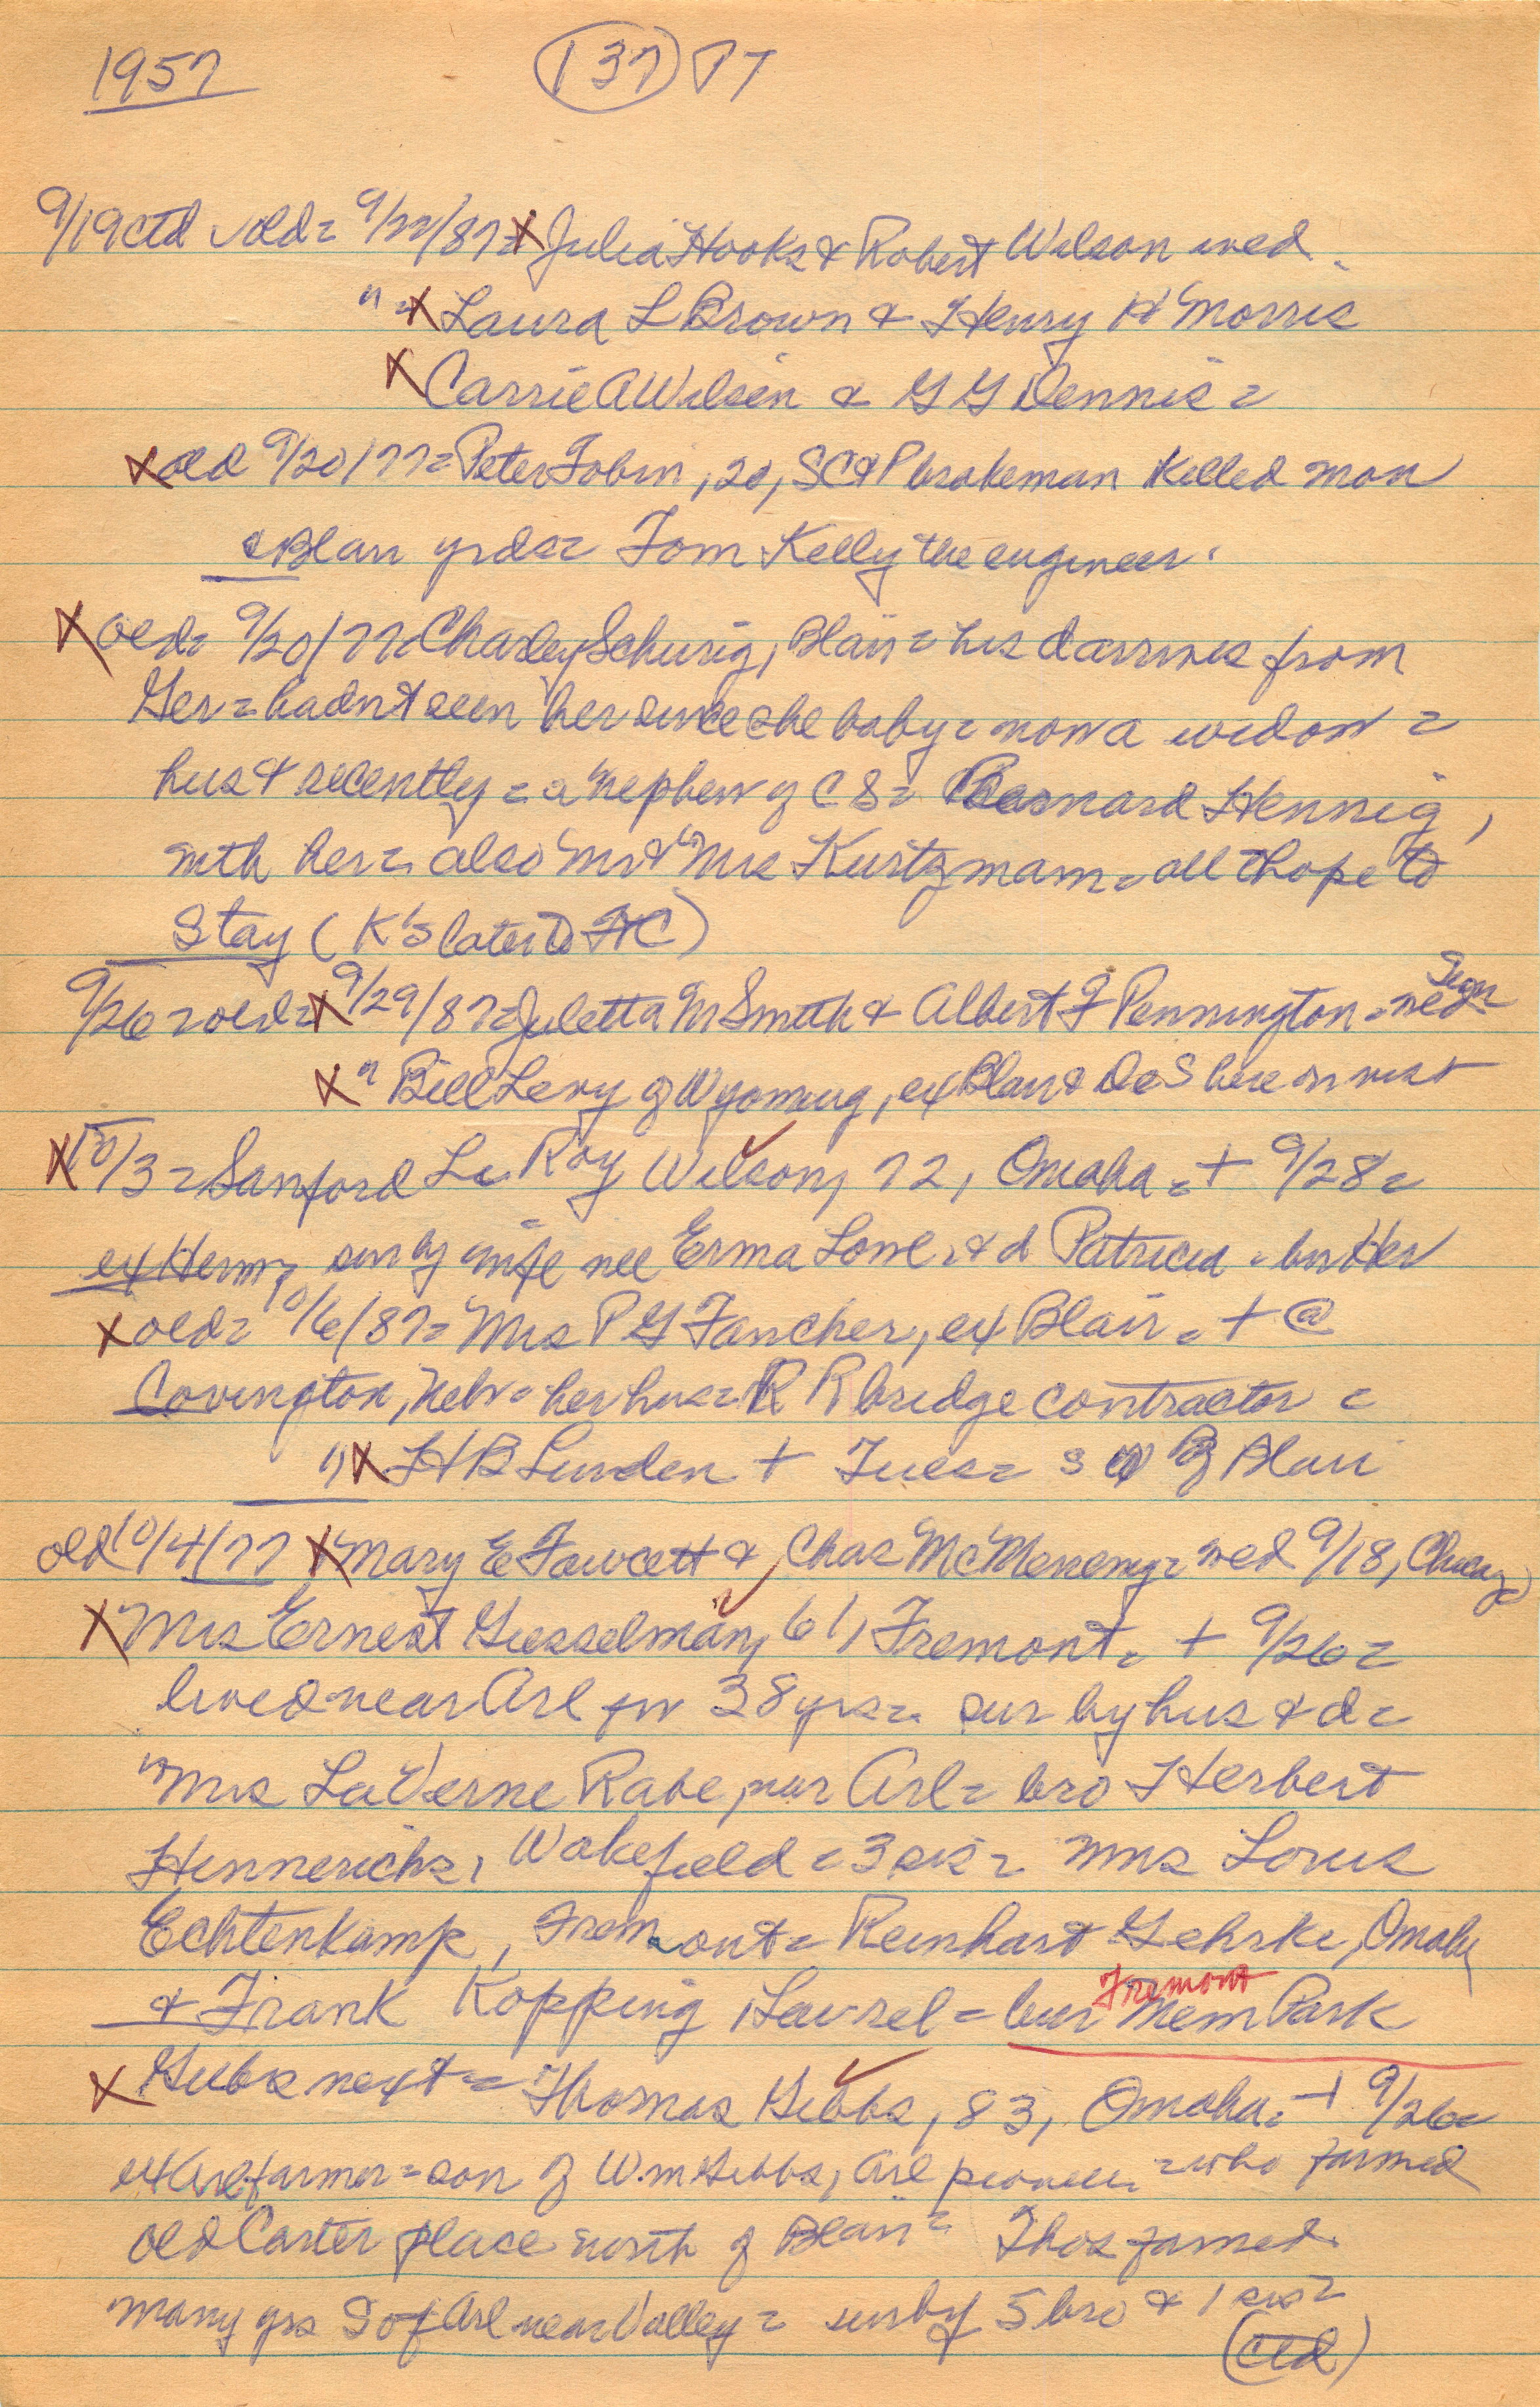 1957 (137) PT
9/19 ctd old = 9/22/87 = X Julia Hooks & Robert Wilson wed
" = X Laura L Brown & Henry H Morris
X Carrie A Wilson & G G Dennis =
X old 9/20/77 = Peter Tobin, 20, SC&P brakeman killed mon
@ Blair yrds = Tom Kelly the engineer.
X old = 9/20/77 = Charley Schurig, Blair = his d arrives from
Ger = hadnt seen her since she baby = now a widow =
hus + recently = a nephew of CS = Bernard Hennig,
with her = also Mr & Mrs Kurtzmann = all hope to
Stay (K's later to FtC)
9/26 = old = X 9/29/87 = Juletta M Smith & Albert F Pennington = wed
X " Bill Levy of Wyoming, ex Blair & DeS here on visit
X 10/3 = Sanford Le Roy Wilson, 72, Omaha = + 9/28 =
ex Herm, sur by wife nee Erma Lowe, & d Patricia = bur Her
X old = 10/6/87 = Mrs P G Fancher, ex Blair = + @
Covington, Nebr = her hus = R R bridge contractor =
" X H B Lunden + Tues = s w of Blair
old 10/4/77 X Mary E Fawcett & Chas McMenemy = wed 9/18, Chicago
X Mrs Ernest Giesselman, 61, Fremont = + 9/26 =
lived near Arl for 38 yrs = sur by hus & d =
Mrs LaVerne Rabe, near Arl = bro Herbert
Hinnerichs, Wakefield = 3 sis = Mrs Louis
Echtenkamp, Fremont = Reinhart Gehrke, Omaha
& Frank Kopping, Laurel = bur Fremont Mem Park
X Gibbs next = Thomas Gibbs, 83, Omaha = + 9/26 =
ex Arl farmer = son of Wm Gibbs, Arl pioneer = who farmed
old Carter place north of Blair = Thos farmed
many yrs S of Arl near Valley = sur by 5 bro & 1 sis =
(ctd)